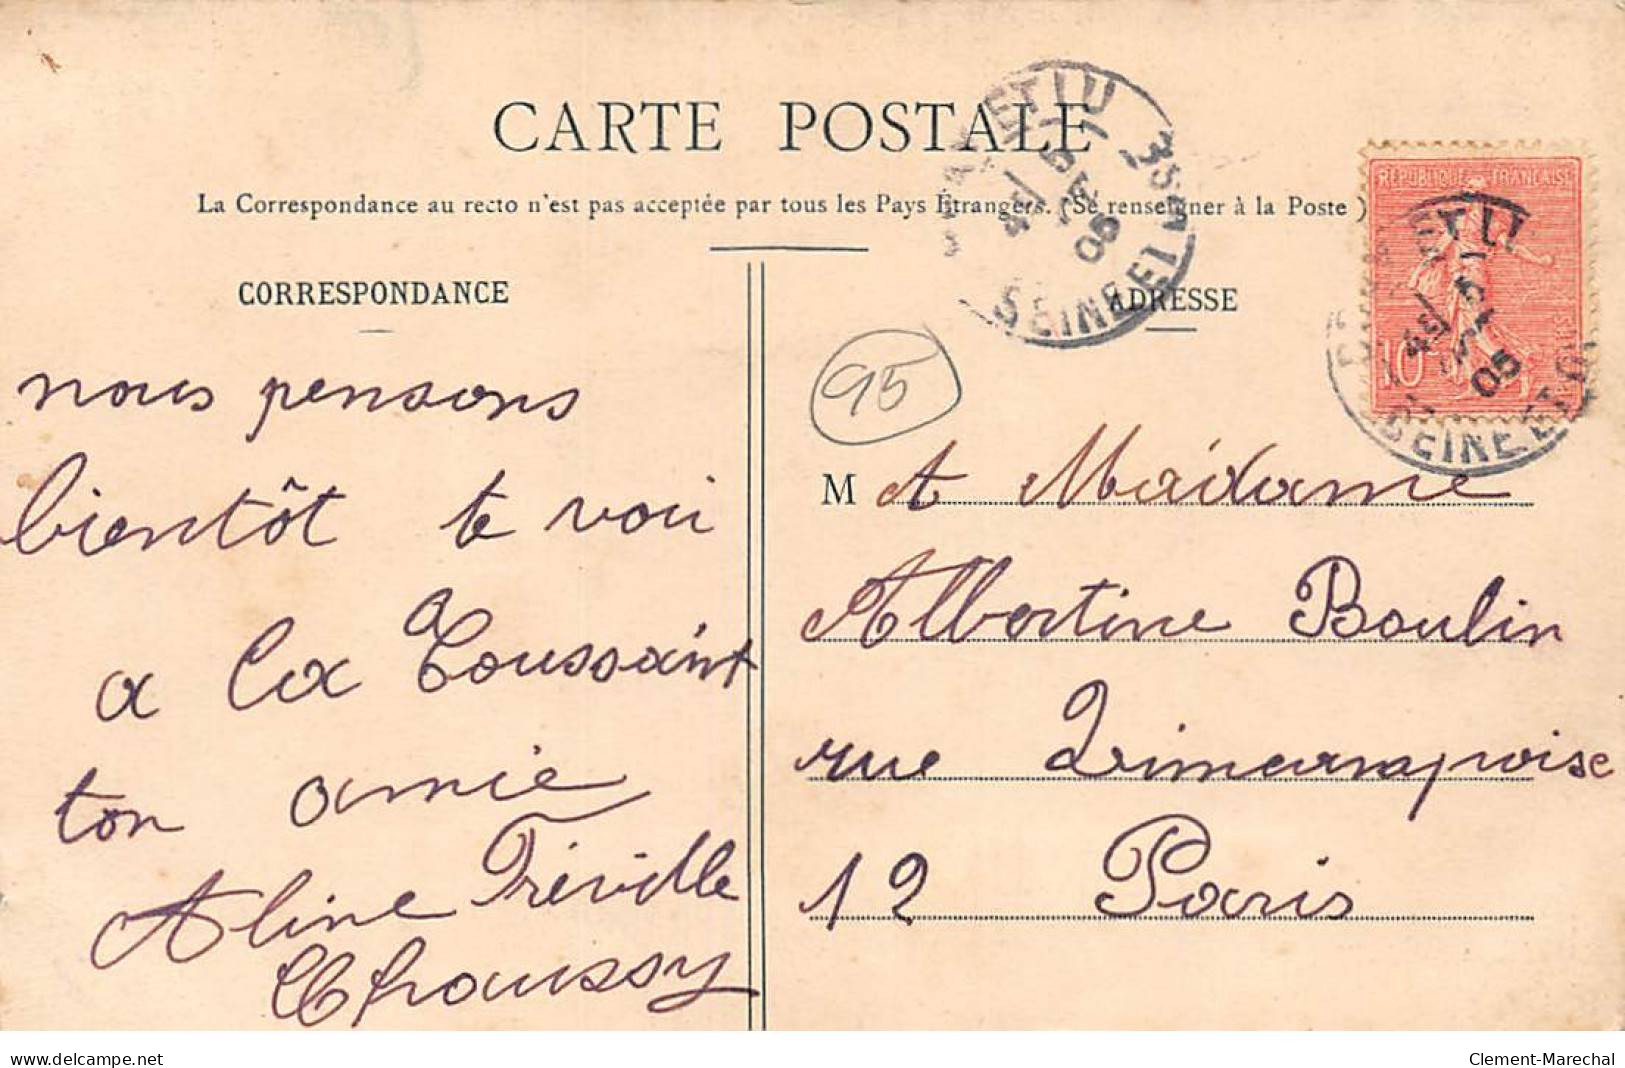 CARTE POSTALE
La Correspondance au recto n'est pas acceptée par tous les Pays Étrangers. (Se renseigner à la Poste)
CORRESPONDANCE
nous pensons
bientôt te voir
a la Toussaint
ton amie
Aline Tréville
Choussy
ADRESSE
95
M et Madame
Albertine Boulin
rue
12 Paris
RÉPUBLIQUE FRANÇAISE
10
SEINE ET
05
SEINE ET
05
www.delcampe.net
Clement-Marechal